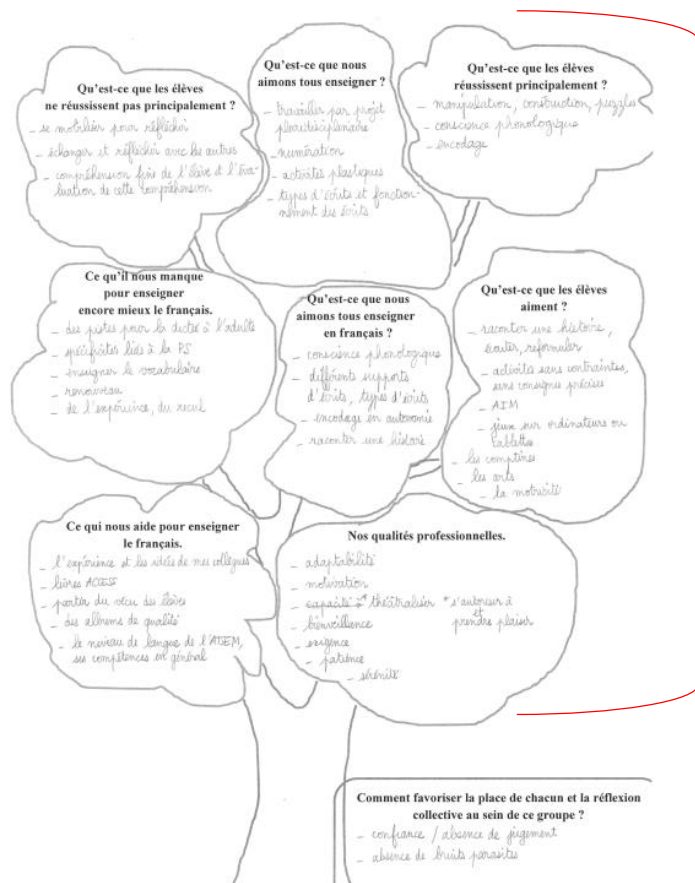 Qu'est-ce que les élèves
ne réussissent pas principalement ?
- se mobiliser pour réfléchir
- échanger et réfléchir avec les autres
- compréhension fine de l'élève et l'éva-
luation de cette compréhension
Qu'est-ce que nous
aimons tous enseigner ?
- travailler par projet
pluridisciplinaire
- numération
- activités plastiques
- types d'écrits et fonction-
nement des écrits
Qu'est-ce que les élèves
réussissent principalement ?
- manipulation, construction, puzzles
- conscience phonologique
- encodage
Ce qu'il nous manque
pour enseigner
encore mieux le français.
- des pistes pour la dictée à l'adulte
- spécificités liées à la PS
- enseigner le vocabulaire
- renouveau
- de l'expérience, du recul
Qu'est-ce que nous
aimons tous enseigner
en français ?
- conscience phonologique
- différents supports
d'écrits, types d'écrits
- encodage en autonomie
- raconter une histoire
Qu'est-ce que les élèves
aiment ?
- raconter une histoire,
écouter, reformuler
- activités sans contraintes,
sans consignes précises
- AIM
- jeux sur ordinateurs ou
tablettes
- les comptines
- les arts
- la motricité
Ce qui nous aide pour enseigner
le français.
- l'expérience et les idées de mes collègues
- livres ACCESS
- partir du vécu des élèves
- des albums de qualité
- le niveau de langue de l'ATSEM,
ses compétences en général
Nos qualités professionnelles.
- adaptabilité
- motivation
- capacité à théâtraliser * s'autoriser à
et
prendre plaisir
- bienveillence
- exigence
- patience
- sérénité
Comment favoriser la place de chacun et la réflexion
collective au sein de ce groupe ?
- confiance / absence de jugement
- absence de bruits parasites